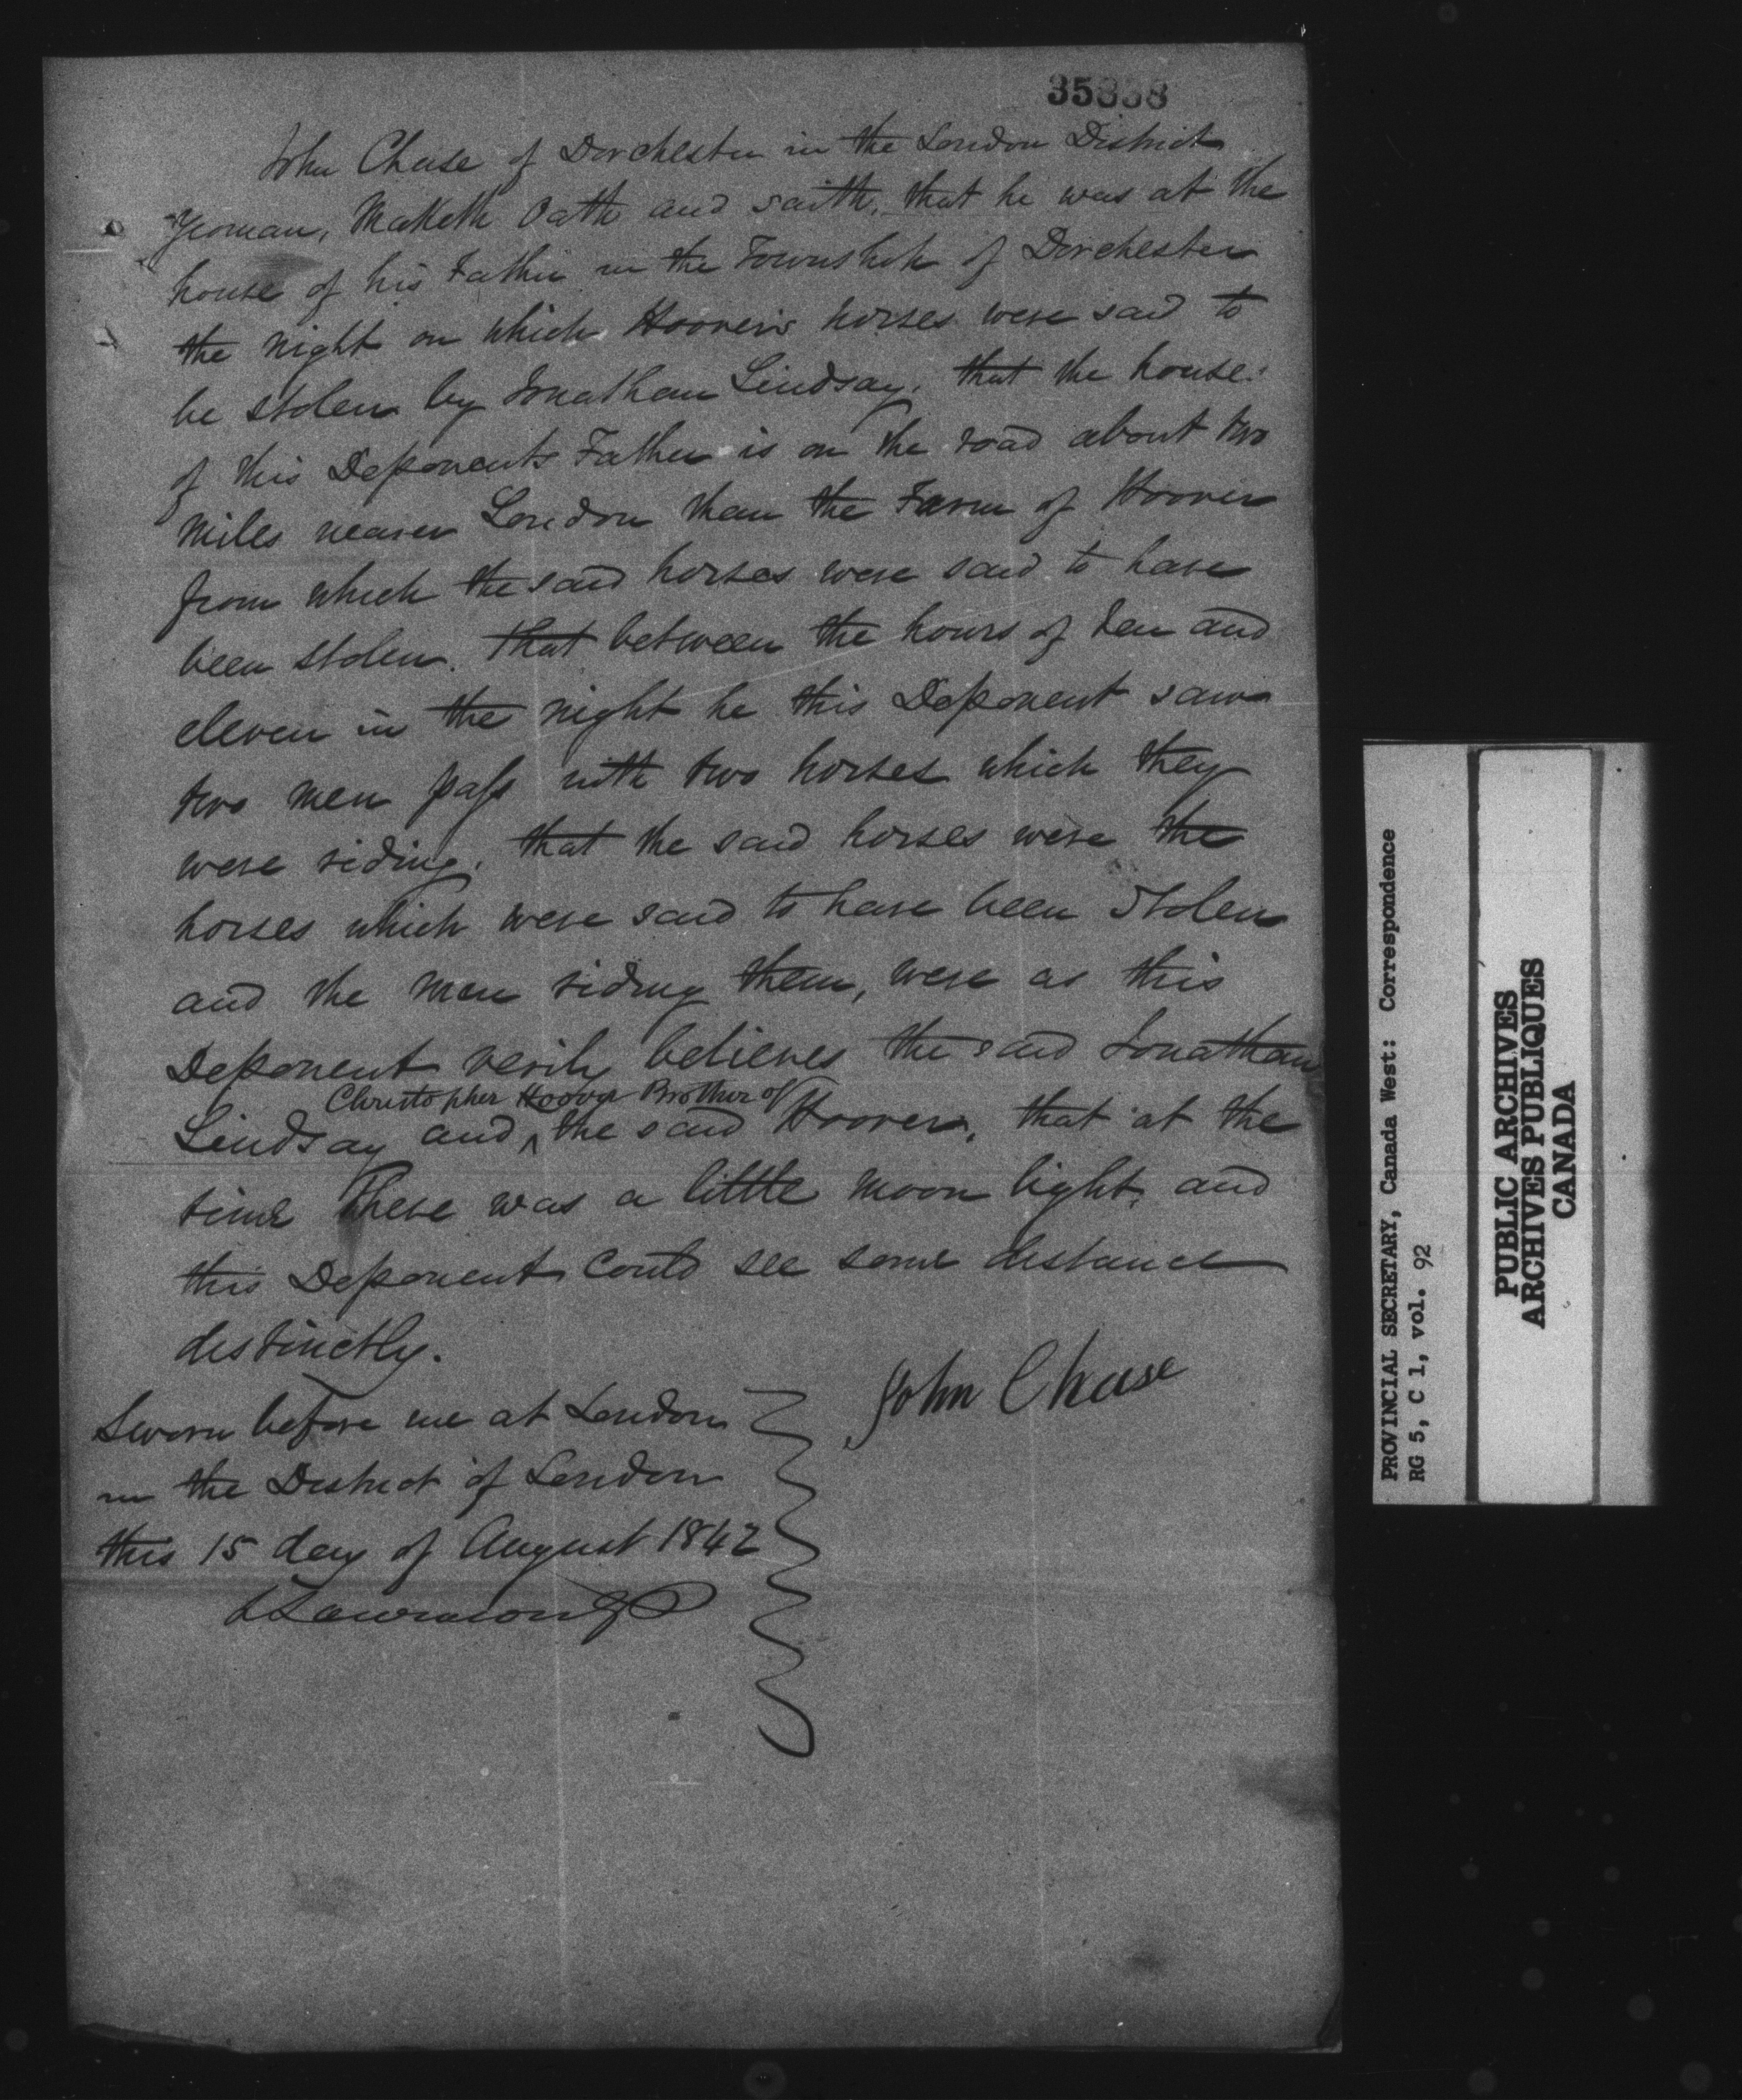 35838
John Chase of Dorchester in the London District
Yeoman, Maketh Oath and saith, that he was at the
house of his Father in the Township of Dorchester
the night on which Hoover's horses were said to
be stolen by Jonathan Lindsay. that the house
of this Deponents Father is on the road about two
miles nearer London than the Farm of Hoover
from which the said horses were said to have
been stolen. that between the hours of ten and
eleven in the night he this Deponent saw
two men pass with two horses which they
were riding. that the said horses were the
horses which were said to have been stolen
and the men riding them, were as this
Deponent verily believes the said Jonathan
Christopher Hoover Brother of
Lindsay and ^ the said Hoover. that at the
time there was a little moon light, and
this Deponent could see some distance
distinctly.
John Chase
Sworn before me at London
in the District of London
this 15 day of August 1842
L Lawrason JP
PROVINCIAL SECRETARY, Canada West: Correspondence
RG 5, C 1, vol. 92
PUBLIC ARCHIVES
ARCHIVES PUBLIQUES
CANADA